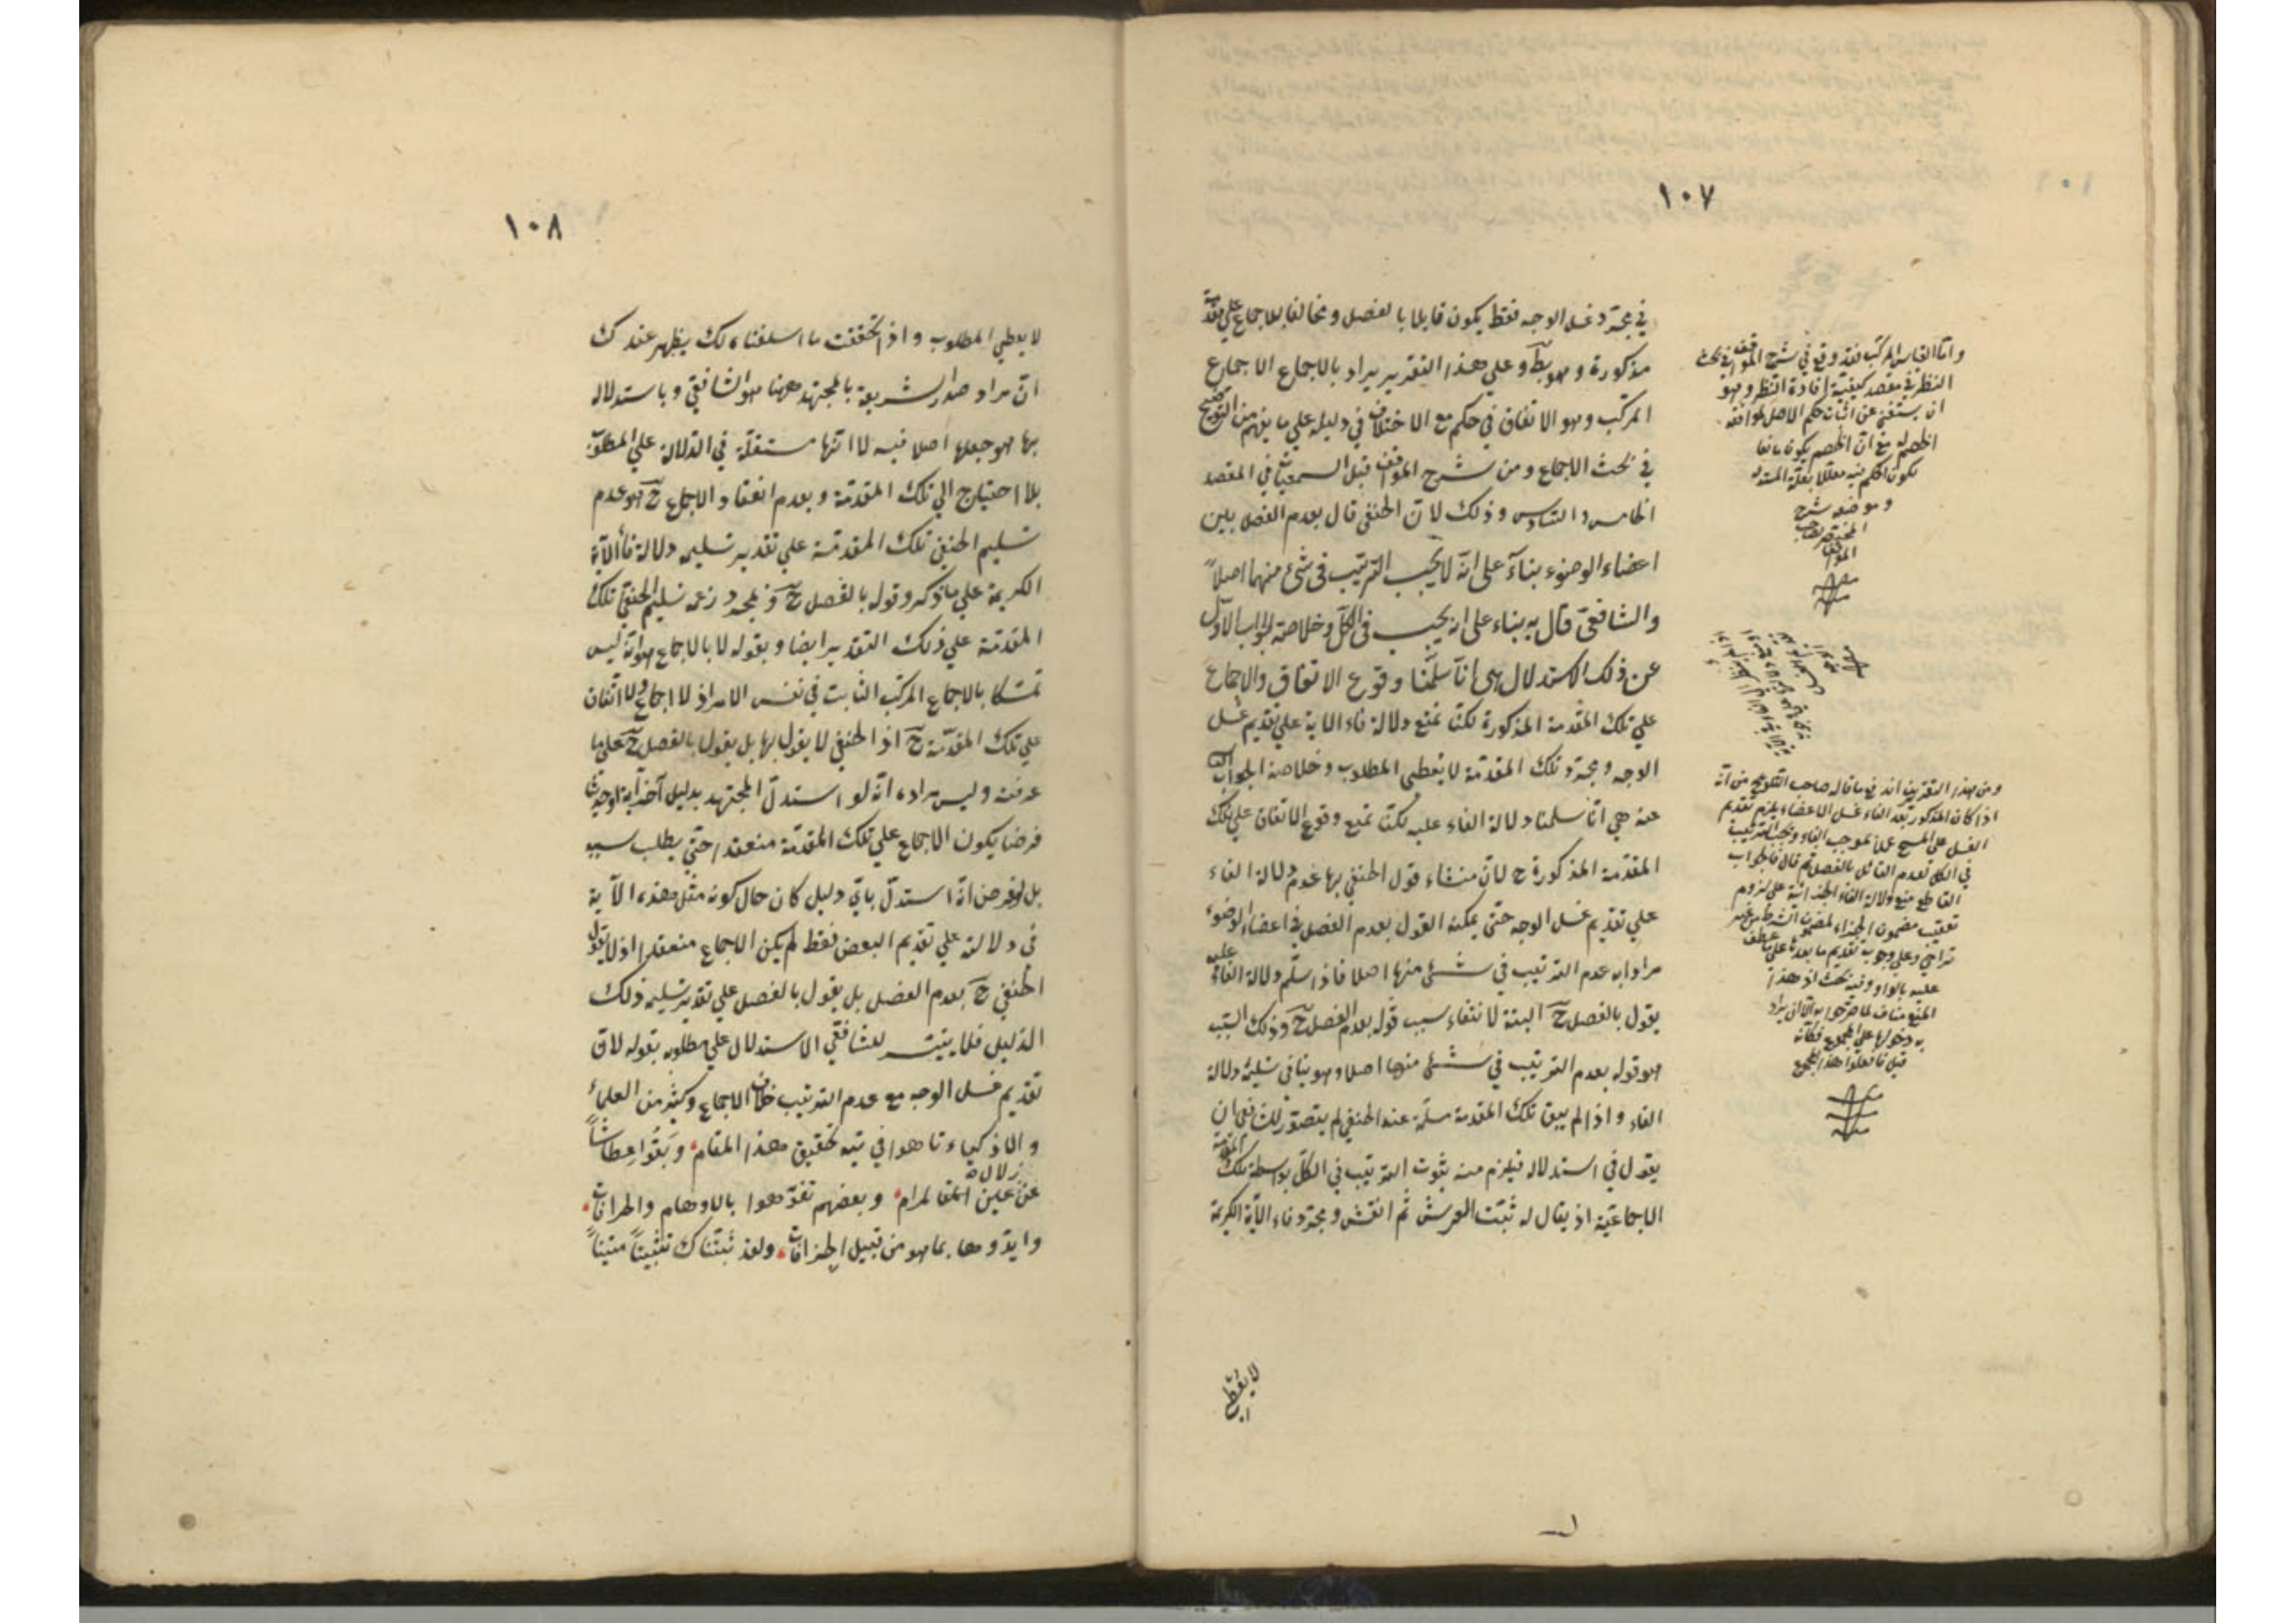 ١٠٧
في مجرد غسل الوجه فقط يكون قايلا بالفصل ومخالفا للاجماع على مقدمة
مذكورة وهو بط وعلي هذا التقرير يراد بالاجماع الاجماع
المركب وهو الاتفاق في حكم مع الاختلاف في دليله علي ما يفهم من التوضيح
في بحث الاجماع ومن شرح المواقف قبل السمعيات في المقصد
الخامس والسادس وذلك لان الحنفي قال بعدم الفصل بين
اعضاء الوضوء بناء على انه لا يجب الترتيب في شئ منهما اصلاً
والشافعي قال به بناء على انه يجب في الكل وخلاصة الجواب الاول
عن ذلك الاستدلال هي انا سلمنا وقوع الاتفاق والاجماع
علي تلك المقدمة المذكورة لكنا نمنع دلالة فاء الاية علي تقديم غسل
الوجه ومجرد تلك المقدمة لا يعطي المطلوب وخلاصة الجواب
عنه هي انا سلمنا دلالة الفاء عليه لكنا نمنع وقوع الاتفاق علي تلك
المقدمة المذكورة ح لان منشاء قول الحنفي بها عدم دلالة الفاء
علي تقديم غسل الوجه حتى يمكنه القول بعدم الفصل في اعضاء الوضوء
مرادا به عدم الترتيب في شئ منها اصلا فاذا سلم دلالة الفاء عليه
يقول بالفصل ح البتة لانتفاء سبب قوله بعدم الفصل ح وذلك السبب
هو قوله بعدم الترتيب في شئ منها اصلا وهو ينافي تسليمه دلالة
الفاء واذا لم يبق تلك المقدمة مسلمة عند الحنفي لم يتصور للشافعي ان
يقول في استدلاله فيلزم منه ثبوت الترتيب في الكل بواسطة تلك المقدمة
الاجماعية اذ يقال له ثبت العرش ثم انقش ومجرد فاء الآية الكريمة
لا يعطي
واما القياس المركب فقد وقع في شرح المواقف في بحث
النظر في مقصد كيفية افادة النظر وهو
ان يستغني عن اثبات حكم الاصل لموافقة
الخصم له مع ان الخصم يكون مانعا
لكون الحكم فيه معللا بعلة المستدل
وموضعه شرح
المختصر لصاحب
المواقف
ومن هذا التقرير اندفع ما قاله صاحب التلويح من انه
اذا كان المذكور بعد الفاء غسل الاعضاء يلزم تقديم
الغسل على المسح عملا بموجب الفاء ويجب الترتيب
في الكل لعدم القائل بالفصل ثم قال فالجواب
القاطع منع دلالة الفاء الجزائية على لزوم
تعقيب مضمون الجزاء لمضمون الشرط من غير
تراخي وعلى وجوب تقديم ما بعدها على ما عطف
عليه بالواو وفيه بحث اذ هذا
المنع مناف لما صرحوا به الا ان يراد
به دخولها على المجموع فكأنه
قيل فافعلوا هذا المجموع
١٠٨
لا يعطي المطلوب واذا تحققت ما اسلفناه لك يظهر عندك
ان مراد صدر الشريعة بالمجتهد ههنا هو الشافعي وباستدلاله
بها هو جعلها اصلا فيه لا انها مستقلة في الدلالة علي المطلوب
بلا احتياج الي تلك المقدمة وبعدم انعقاد الاجماع ح هو عدم
تسليم الحنفي تلك المقدمة علي تقدير تسليمه دلالة فاء الآية
الكريمة علي ما ذكر وقوله بالفصل ح و لمجرد زعمه تسليم الحنفي تلك
المقدمة علي ذلك التقدير ايضا وبقوله لا بالاجماع هو انه ليس
تمسكا بالاجماع المركب الثابت في نفس الامر اذ لا اجماع ولا اتفاق
علي تلك المقدمة ح اذ الحنفي لا يقول بها بل يقول بالفصل ح على ما
عرفته وليس مراده انه لو استدل المجتهد بدليل آخر آية او حديث
فرضا يكون الاجماع علي تلك المقدمة منعقدا حتي يطلب سببه
بل لو فرض انه استدل باي دليل كان حال كونه مثل هذه الآية
في دلالته علي تقديم البعض فقط لم يكن الاجماع منعقدا اذ لا يقول
الحنفي ح بعدم الفصل بل يقول بالفصل علي تقدير تسليمه ذلك
الدليل فلا يتيسر للشافعي الاستدلال علي مطلوبه بقوله لان
تقديم غسل الوجه مع عدم الترتيب خلاف الاجماع وكثير من العلماء
والاذكياء تاهوا في تيه تحقيق هذا المقام، وبقوا عطاشاً
عن عين زلال هذا المرام، وبعضهم تفوهوا بالاوهام والخرافات،
وايدوها بما هو من قبيل الجزافات، ولقد ثبتناك تثبيتاً متيناً